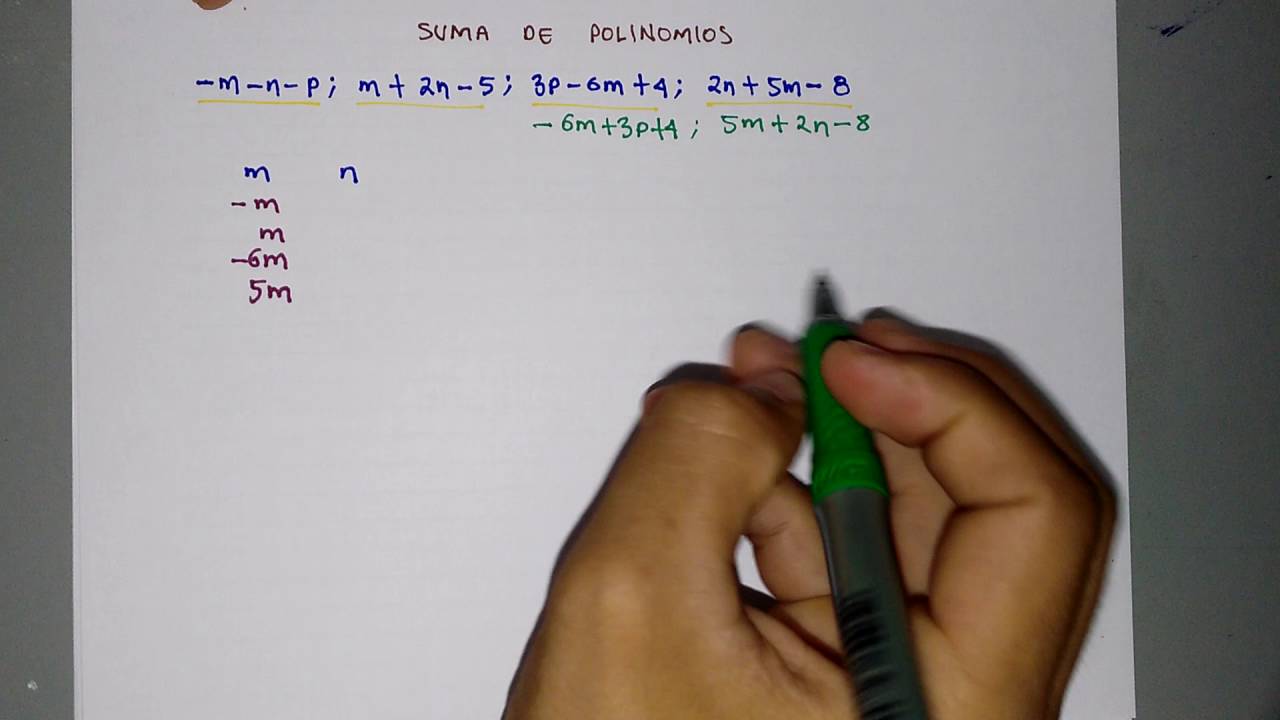 SUMA DE POLINOMIOS
-m-n-p; m+2n-5; 3p-6m+4; 2n+5m-8
-6m+3p+4; 5m+2n-8
m n
-m
m
-6m
5m